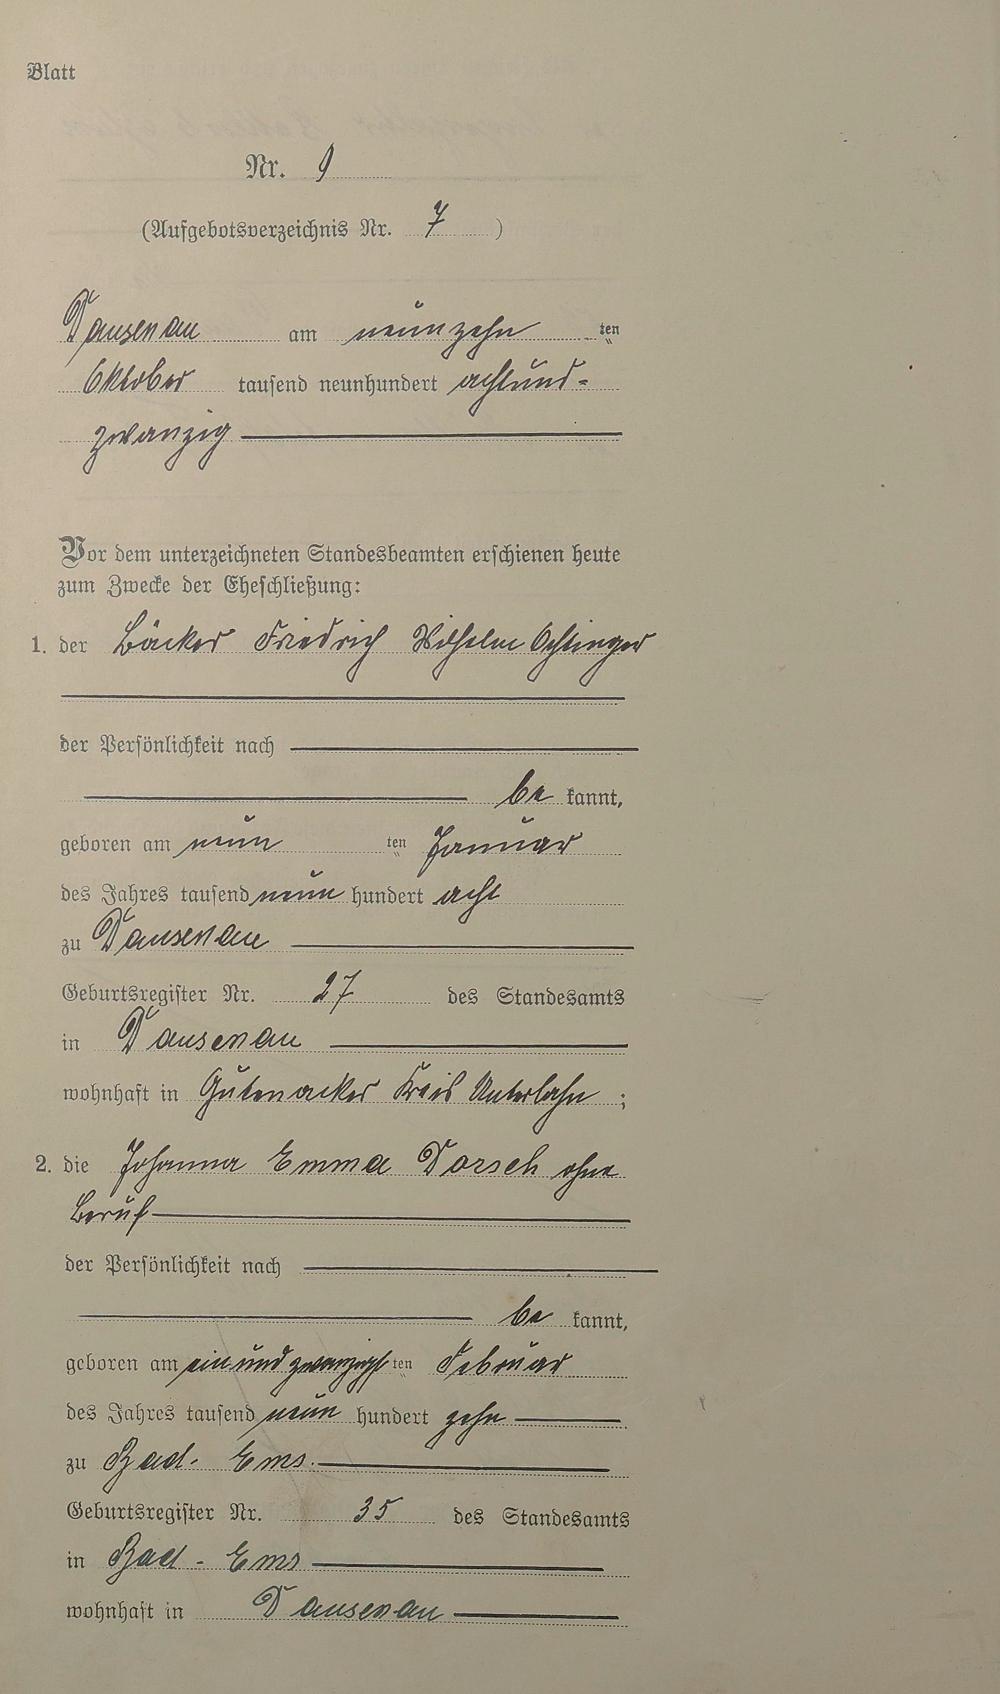 Blatt
Nr. 9
(Aufgebotsverzeichnis Nr. 7 )
Dausenau am neunzehn ten
Oktober tausend neunhundert achtund-
zwanzig
Vor dem unterzeichneten Standesbeamten erschienen heute
zum Zwecke der Eheschließung:
1. der Bäcker Friedrich Wilhelm Ochtinger
der Persönlichkeit nach
be kannt,
geboren am neun ten Januar
des Jahres tausend neun hundert acht
zu Dausenau
Geburtsregister Nr. 27 des Standesamts
in Dausenau
wohnhaft in Gutenacker Kreis Unterlahn ;
2. die Johanna Emma Dorsch ohne
Beruf
der Persönlichkeit nach
be kannt,
geboren am ein und zwanzigst ten Februar
des Jahres tausend neun hundert zehn
zu Bad- Ems.
Geburtsregister Nr. 35 des Standesamts
in Bad - Ems
wohnhaft in Dausenau